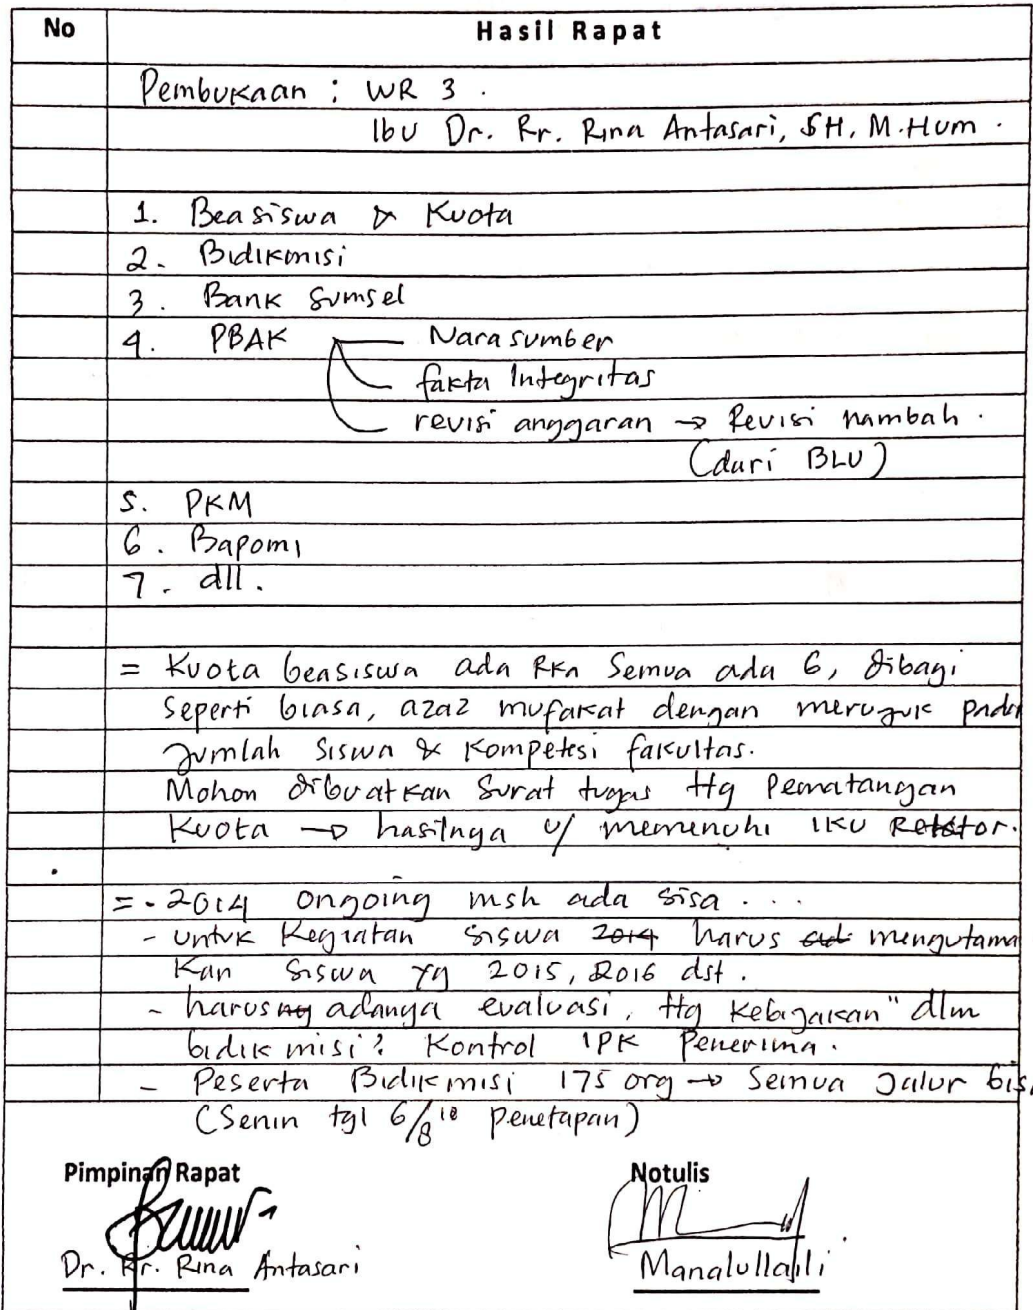 No Hasil Rapat
Pembukaan : WR 3 .
Ibu Dr. Rr. Rina Antasari, SH, M.Hum .
1. Beasiswa & Kuota
2. Bidikmisi
3. Bank Sumsel
4. PBAK Narasumber
fakta Integritas
revisi anggaran → Revisi nambah .
(dari BLU)
5. PKM
6. Bapomi
7. dll .
= Kuota beasiswa ada RKA Semua ada 6, dibagi
Seperti biasa, azaz mufakat dengan merujuk pada
Jumlah siswa & Kompetesi fakultas.
Mohon dibuatkan Surat tugas ttg Pematangan
Kuota → hasilnya u/ memenuhi IKU Rektor.
= - 2014 Ongoing msh ada sisa . . .
- untuk Kegiatan siswa 2014 harus mengutama
Kan siswa yg 2015, 2016 dst .
- harus adanya evaluasi, ttg Kebijakan" dlm
bidik misi? Kontrol IPK Penerima .
- Peserta Bidikmisi 175 org → Semua Jalur bis
(Senin tgl 6/8 18 penetapan)
Pimpinan Rapat Notulis
Dr. Rr. Rina Antasari Manalullaili